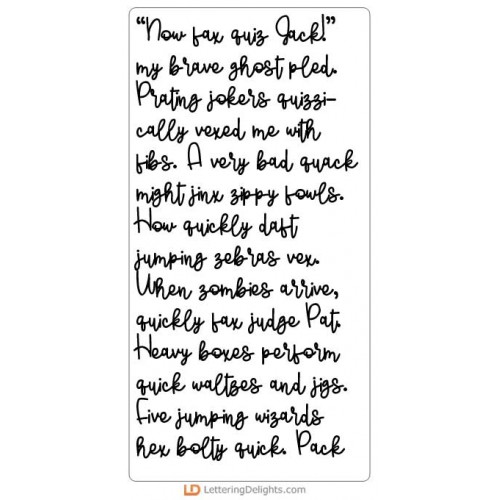 “Now fax quiz Jack!”
my brave ghost pled.
Prating jokers quizzi-
cally vexed me with
fibs. A very bad quack
might jinx zippy fowls.
How quickly daft
jumping zebras vex.
When zombies arrive,
quickly fax judge Pat.
Heavy boxes perform
quick waltzes and jigs.
Five jumping wizards
hex bolty quick. Pack
LD LetteringDelights.com